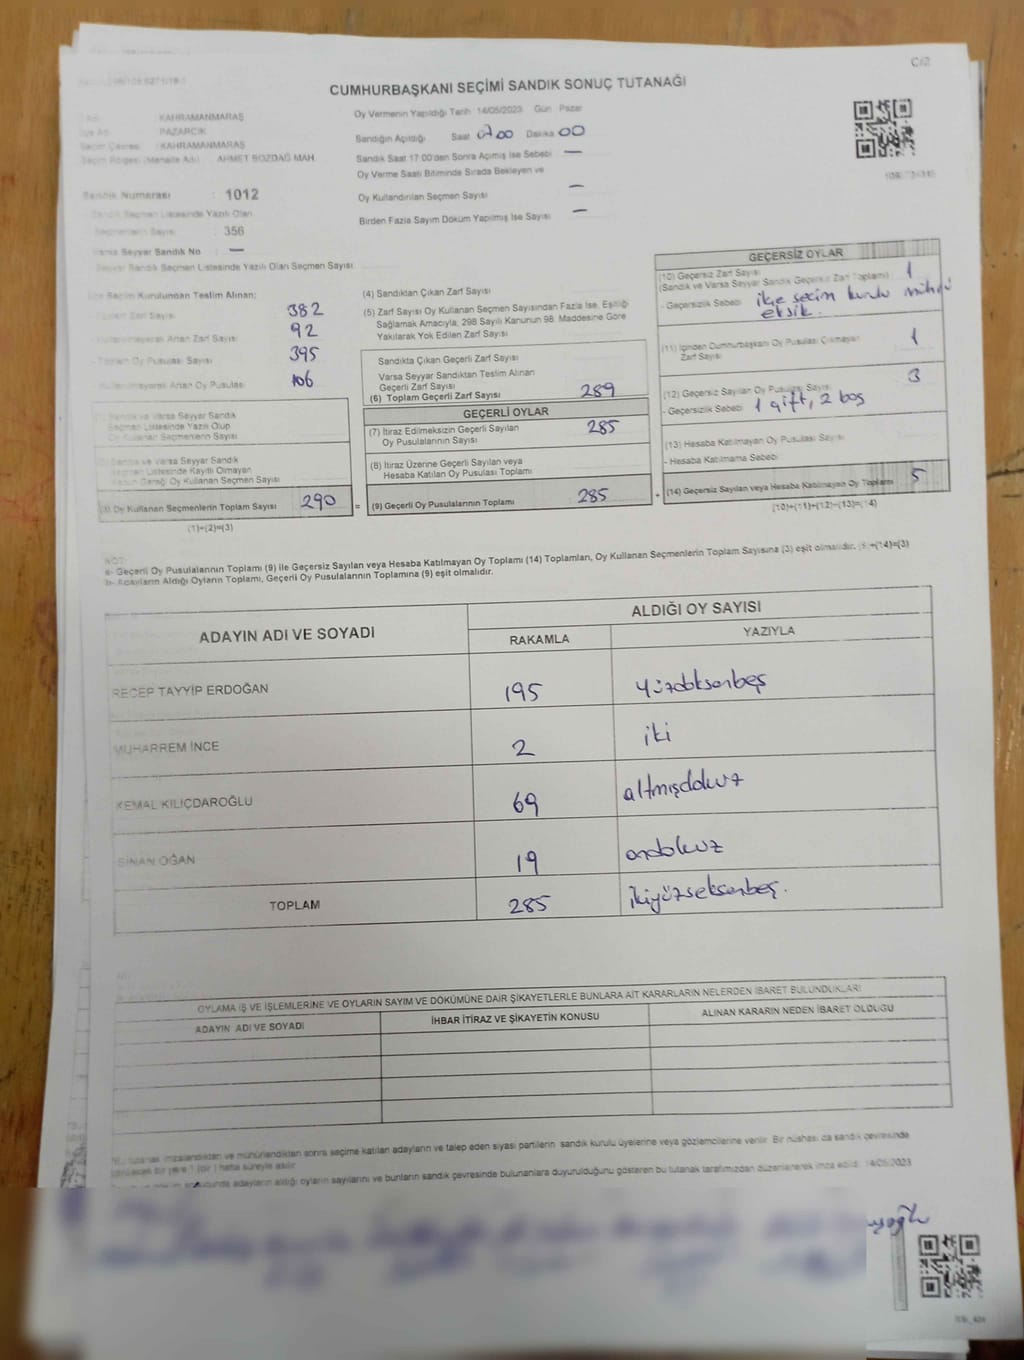 C/2
CUMHURBAŞKANI SEÇİMİ SANDIK SONUÇ TUTANAĞI
KAHRAMANMARAŞ
PAZARCIK
KAHRAMANMARAŞ
AHMET BOZDAĞ MAH.
Oy Vermenin Yapıldığı Tarih 14/05/2023 Gün Pazar
Sandığın Açıldığı Saat Dakika 00
Sandık Saat 17:00'den Sonra Açılmış İse Sebebi —
Oy Verme Saati Bitiminde Sırada Bekleyen ve
Oy Kullandırılan Seçmen Sayısı —
Birden Fazla Sayım Döküm Yapılmış İse Sayısı —
Sandık Numarası : 1012
Sandık Seçmen Listesinde Yazılı Olan
Seçmenlerin Sayısı : 356
Varsa Seyyar Sandık No : —
Seyyar Sandık Seçmen Listesinde Yazılı Olan Seçmen Sayısı
İlçe Seçim Kurulundan Teslim Alınan;
Toplam Zarf Sayısı 382
- Kullanılmayarak Artan Zarf Sayısı 92
- Toplam Oy Pusulası Sayısı 395
- Kullanılmayarak Artan Oy Pusulası 106
Sandık ve Varsa Seyyar Sandık
Seçmen Listesinde Yazılı Olup
Oy Kullanan Seçmenlerin Sayısı
Sandık ve Varsa Seyyar Sandık
Seçmen Listesinde Kayıtlı Olmayan
Kanun Gereği Oy Kullanan Seçmen Sayısı
(3) Oy Kullanan Seçmenlerin Toplam Sayısı 290 =
(1)+(2)=(3)
(4) Sandıktan Çıkan Zarf Sayısı
(5) Zarf Sayısı Oy Kullanan Seçmen Sayısından Fazla İse, Eşitliği
Sağlamak Amacıyla, 298 Sayılı Kanunun 98. Maddesine Göre
Yakılarak Yok Edilen Zarf Sayısı
Sandıkta Çıkan Geçerli Zarf Sayısı
Varsa Seyyar Sandıktan Teslim Alınan
Geçerli Zarf Sayısı
(6) Toplam Geçerli Zarf Sayısı 289
GEÇERLİ OYLAR
(7) İtiraz Edilmeksizin Geçerli Sayılan 285
Oy Pusulalarının Sayısı
(8) İtiraz Üzerine Geçerli Sayılan veya
Hesaba Katılan Oy Pusulası Toplamı
(9) Geçerli Oy Pusulalarının Toplamı 285 +
GEÇERSİZ OYLAR
(10) Geçersiz Zarf Sayısı 1
(Sandık ve Varsa Seyyar Sandık Geçersiz Zarf Toplamı)
- Geçersizlik Sebebi ilçe seçim kurulu mührü
eksik.
(11) İçinden Cumhurbaşkanı Oy Pusulası Çıkmayan 1
Zarf Sayısı
(12) Geçersiz Sayılan Oy Pusulası Sayısı 3
- Geçersizlik Sebebi 1 çift, 2 boş
(13) Hesaba Katılmayan Oy Pusulası Sayısı
- Hesaba Katılmama Sebebi
(14) Geçersiz Sayılan veya Hesaba Katılmayan Oy Toplamı 5
(10)+(11)+(12)+(13)=(14)
NOT:
a- Geçerli Oy Pusulalarının Toplamı (9) ile Geçersiz Sayılan veya Hesaba Katılmayan Oy Toplamı (14) Toplamları, Oy Kullanan Seçmenlerin Toplam Sayısına (3) eşit olmalıdır. (9)+(14)=(3)
b- Adayların Aldığı Oyların Toplamı, Geçerli Oy Pusulalarının Toplamına (9) eşit olmalıdır.
ADAYIN ADI VE SOYADI
ALDIĞI OY SAYISI
RAKAMLA YAZIYLA
RECEP TAYYİP ERDOĞAN 195 yüzdoksanbeş
MUHARREM İNCE 2 iki
KEMAL KILIÇDAROĞLU 69 altmışdokuz
SİNAN OĞAN 19 ondokuz
TOPLAM 285 ikiyüzseksenbeş.
OYLAMA İŞ VE İŞLEMLERİNE VE OYLARIN SAYIM VE DÖKÜMÜNE DAİR ŞİKAYETLERLE BUNLARA AİT KARARLARIN NELERDEN İBARET BULUNDUKLARI
ADAYIN ADI VE SOYADI İHBAR İTİRAZ VE ŞİKAYETİN KONUSU ALINAN KARARIN NEDEN İBARET OLDUĞU
tutanak imzalandıktan ve mühürlendikten sonra seçime katılan adayların ve talep eden siyasi partilerin sandık kurulu üyelerine veya gözlemcilerine verilir. Bir nüshası da sandık çevresinde
bir yere 1 (bir) hafta süreyle asılır.
adayların aldığı oyların sayılarını ve bunların sandık çevresinde bulunanlara duyurulduğunu gösteren bu tutanak tarafımızdan düzenlenerek imza edildi. 14/05/2023